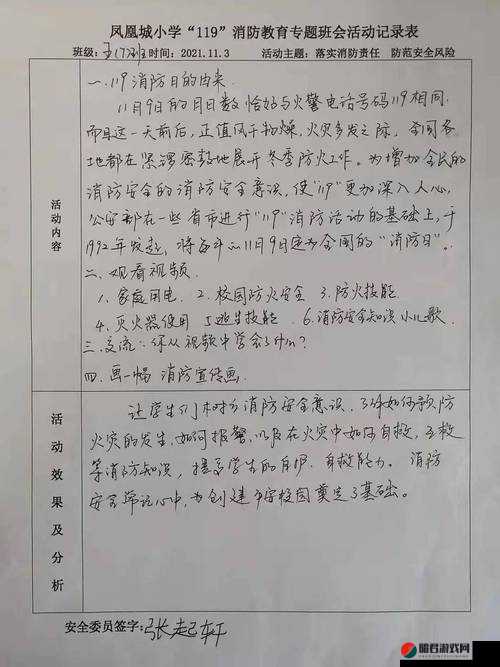 凤凰城小学“119”消防教育专题班会活动记录表
班级: 时间：2021.11.3 活动主题：落实消防责任 防范安全风险
活动内容
一.119消防日的由来.
11月9日的月日数恰好与火警电话号码119相同.
而且这一天前后,正值风干物燥,火灾多发之际,全国各
地都在紧锣密鼓地展开冬季防火工作。为增加全民的
消防安全的消防安全意识,使“119”更加深入人心,
公安部在一些省市进行“119”消防活动的基础上,于
1992年发起,将每年的11月9日定为全国的“消防日”。
二、观看视频
1、家庭用电 2.校园防火安全 3.防火技能
4.灭火器使用 5逃生技能. 6.消防安全知识小儿歌.
三.交流:你从视频中学会了什么?
四.画一幅 消防宣传画.
活动效果及分析
让学生们树立消防安全意识,了解如何预防
火灾的发生,如何报警,以及在火灾中如何自救,互救
等消防知识,提高学生的自护、自救能力。消防
安全牢记心中,为创建平安校园奠定了基础。
安全委员签字:张起轩
晗君游戏网